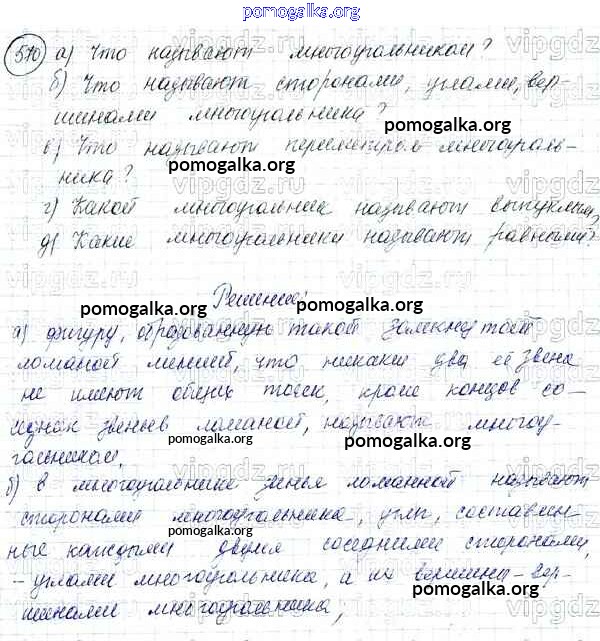 pomogalka.org
570 а) Что называют многоугольником?
б) Что называют сторонами, углами, вер-
шинами многоугольника?
pomogalka.org
в) Что называют периметром многоуголь-
pomogalka.org
ника?
г) Какой многоугольник называют выпуклым?
д) Какие многоугольники называют равными?
Решение:
pomogalka.org pomogalka.org
а) фигуру, образованную такой замкнутой
ломаной линией, что никакие два её звена
не имеют общих точек, кроме концов со-
седних звеньев ломаной, называют многоу-
pomogalka.org
гольником.
б) в многоугольнике звенья ломанной называют
сторонами многоугольника, углы, составлен-
pomogalka.org
ные каждыми двумя соседними сторонами,
- углами многоугольника, а их вершины - вер-
pomogalka.org
шинами многоугольника;